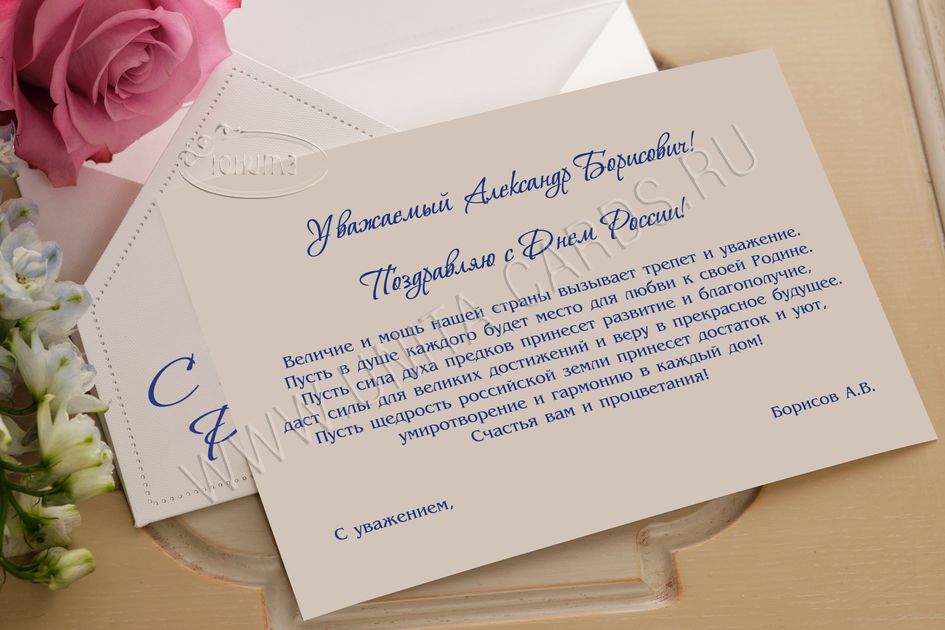 Юнита
WWW.UNITA-CARDS.RU
Уважаемый Александр Борисович!
Поздравляю с Днем России!
Величие и мощь нашей страны вызывает трепет и уважение.
Пусть в душе каждого будет место для любви к своей Родине.
Пусть сила духа предков принесет развитие и благополучие,
даст силы для великих достижений и веру в прекрасное будущее.
Пусть щедрость российской земли принесет достаток и уют,
умиротворение и гармонию в каждый дом!
Счастья вам и процветания!
С уважением,
Борисов А.В.
С